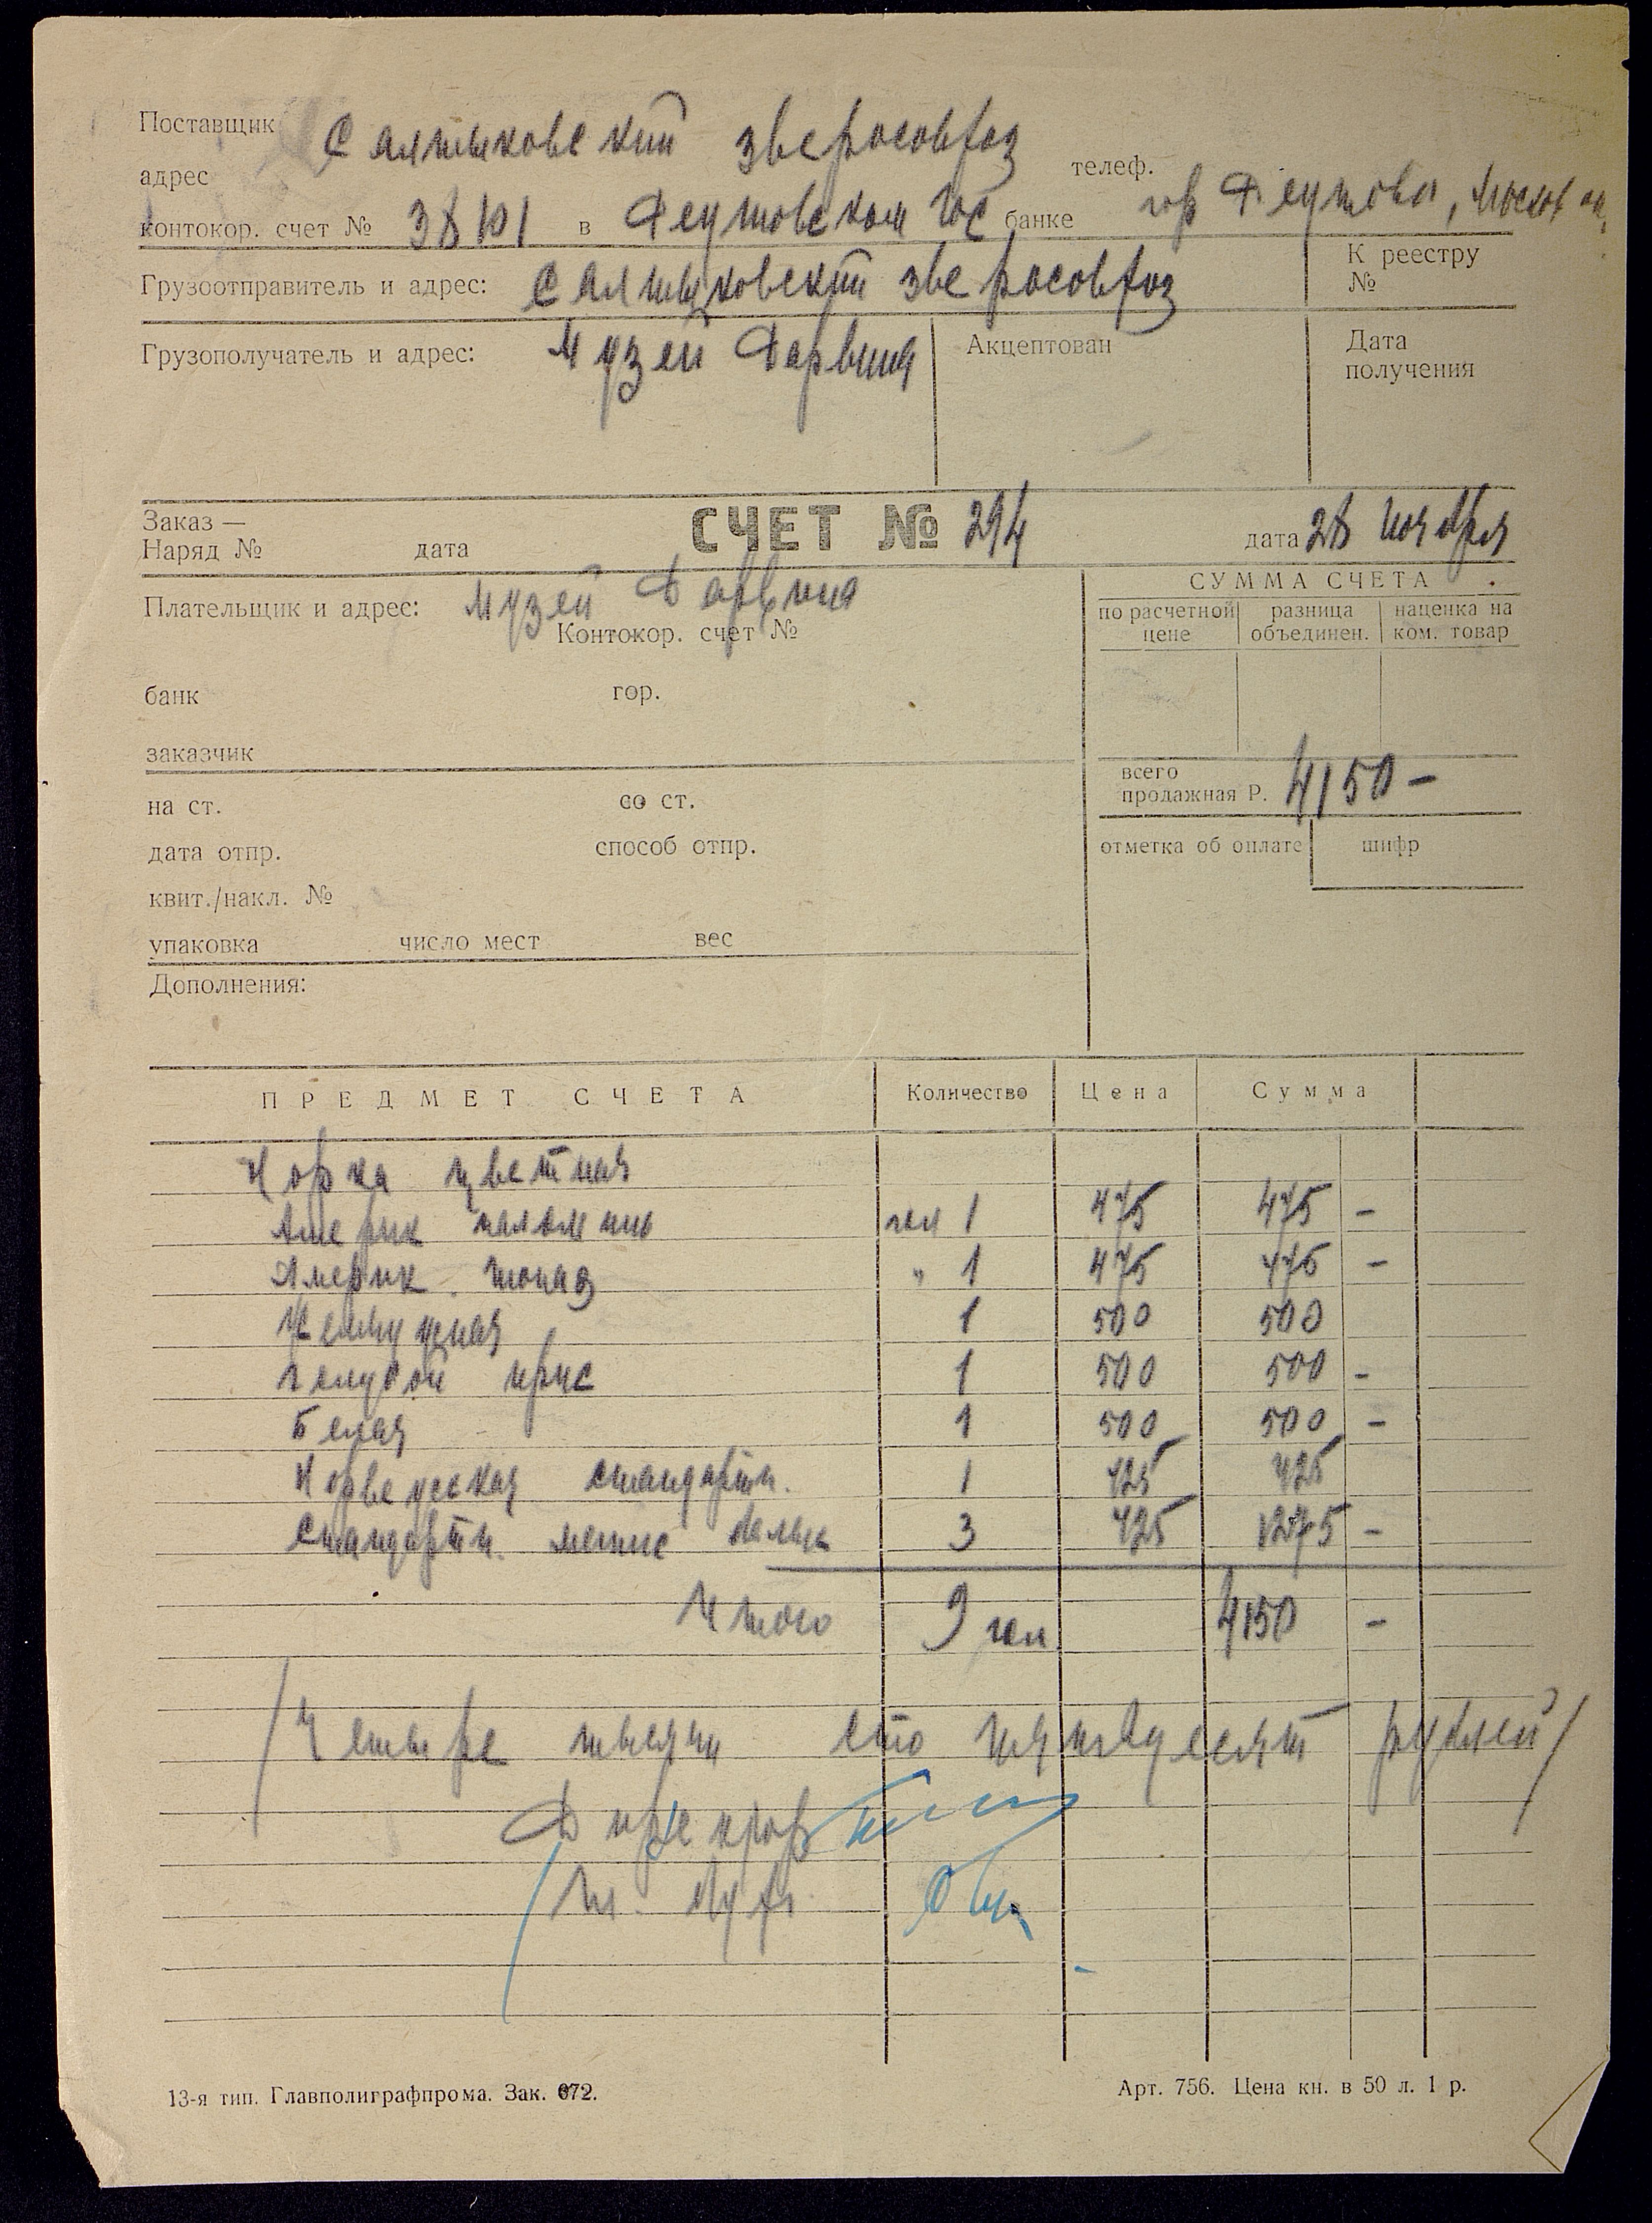 Поставщик Салтыковский зверосовхоз
адрес телеф.
контокор. счет № 38101 в Реутовском Гос банке гор Реутово, Москов
Грузоотправитель и адрес: Салтыковский зверосовхоз К реестру №
Грузополучатель и адрес: Музей Дарвина Акцептован Дата получения
Заказ —
Наряд № дата СЧЕТ № 294 дата 28 ноября
Плательщик и адрес: Музей Дарвина
Контокор. счет №
СУММА СЧЕТА
по расчетной цене разница объединен. наценка на ком. товар
банк гор.
заказчик
всего продажная Р. 4150 –
на ст. со ст.
дата отпр. способ отпр.
отметка об оплате шифр
квит./накл. №
упаковка число мест вес
Дополнения:
ПРЕДМЕТ СЧЕТА Количество Цена Сумма
Норка цветная
Америк паломино гол 1 475 475 –
Америк. топаз " 1 475 475 –
Жемчужная 1 500 500
голубой ирис 1 500 500 –
Белая 1 500 500 –
Норвежская стандартн. 1 425 425
Стандартн. 3 425 1275 –
Итого 9 гол 4150 –
/Четыре тысячи сто пятьдесят рублей/
Директор
Гл. бухг.
13-я тип. Главполиграфпрома. Зак. 672.
Арт. 756. Цена кн. в 50 л. 1 р.